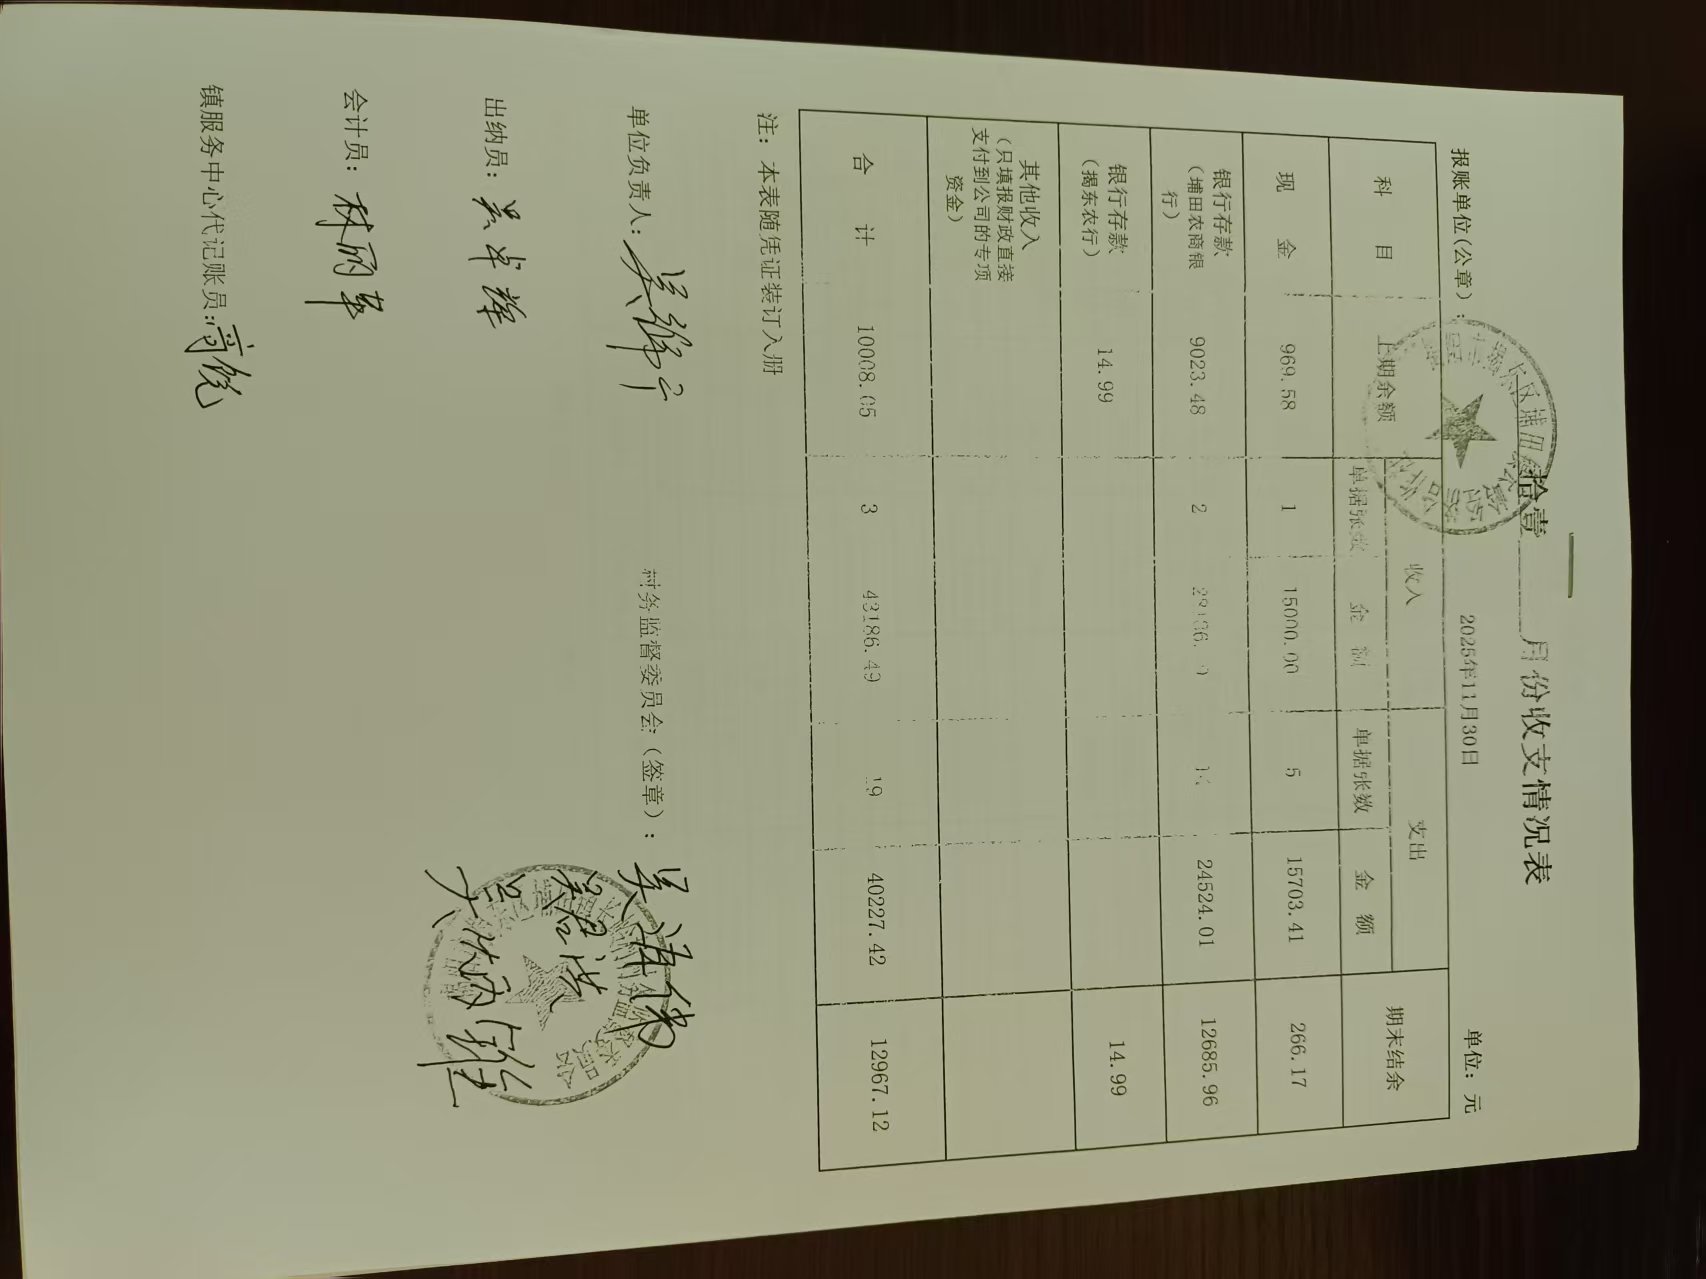 拾壹 月份收支情况表
报账单位(公章): 2025年11月30日 单位: 元
科 目 上期余额 收入 支出 期末结余
单据张数 金 额 单据张数 金 额
现 金 969.58 1 15000.00 5 15703.41 266.17
银行存款 (埔田农商银行) 9023.48 2 24524.01 12685.96
银行存款 (揭东农行) 14.99 14.99
其他收入 (只填报财政直接支付到公司的专项资金)
合 计 10008.05 3 43186.49 19 40227.42 12967.12
注: 本表随凭证装订入册
单位负责人: 村务监督委员会(签章):
出纳员:
会计员: 林丽
镇服务中心代记账员: